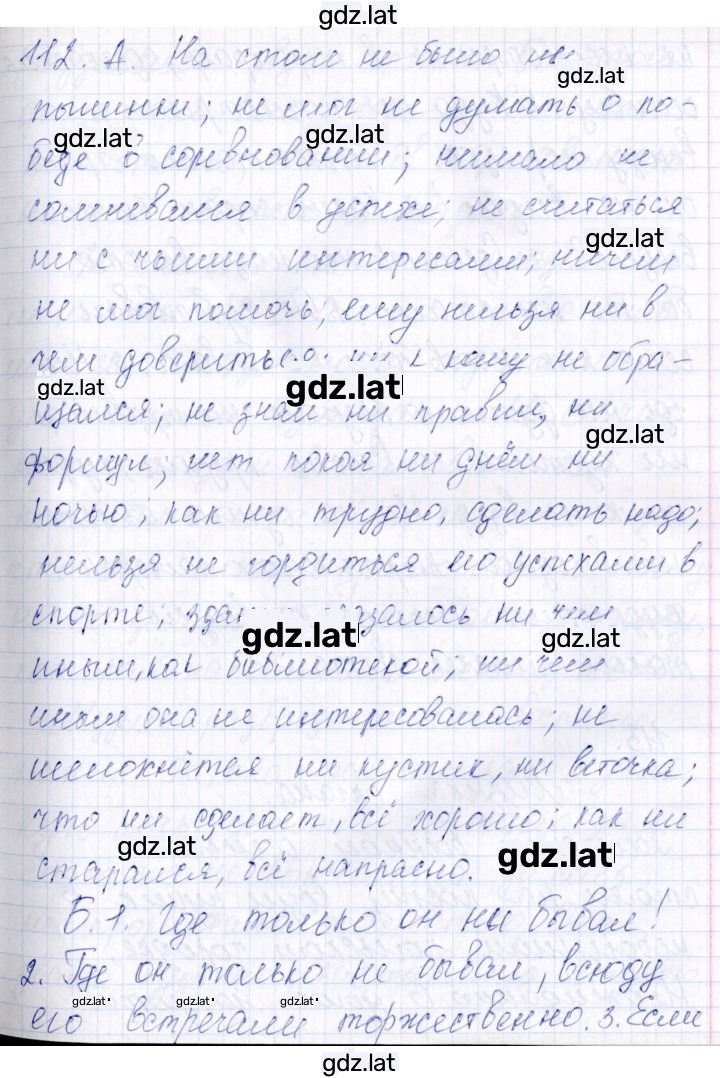 gdz.lat
112. А. На столе не было ни
gdz.lat
пылинки; не мог не думать о по-
gdz.lat gdz.lat
беде в соревновании; нимало не
сомневался в успехе; не считаться
gdz.lat
ни с чьими интересами; ничем
не мог помочь, ему нельзя ни в
чём довериться; ни к кому не обра-
gdz.lat gdz.lat
щался; не знал ни правил, ни
gdz.lat
формул; нет покоя ни днём ни
ночью; как ни трудно, сделать надо;
нельзя не гордиться его успехами в
спорте; оказалось ни чем
gdz.lat gdz.lat
иным, как библиотекой; ни чем
иным она не интересовалась; не
шелохнётся ни кустик, ни веточка;
что ни сделает, всё хорошо; как ни
gdz.lat gdz.lat
старался, всё напрасно.
Б. 1. Где только он ни бывал!
2. Где он только не бывал, всюду
gdz.lat gdz.lat gdz.lat
его встречали торжественно. 3. Если
gdz.lat